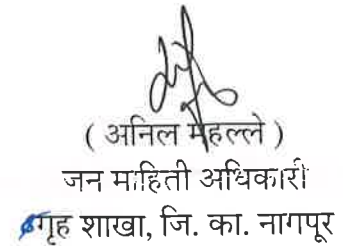 ( अनिल मेहल्ले )
जन माहिती अधिकारी
गृह शाखा, जि. का. नागपूर